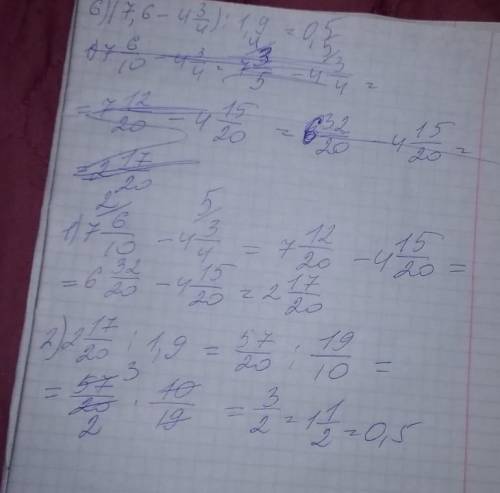 б) (7,6 - 4 3/4) : 1,9 = 0,5
1) 7 6/10 - 4 3/4 = 7 3/5 - 4 3/4 =
= 7 12/20 - 4 15/20 = 6 32/20 - 4 15/20 =
= 2 17/20
2/ 5/
1) 7 6/10 - 4 3/4 = 7 12/20 - 4 15/20 =
= 6 32/20 - 4 15/20 = 2 17/20
2) 2 17/20 : 1,9 = 57/20 : 19/10 =
= 57 3/20 2 · 10/19 = 3/2 = 1 1/2 = 0,5